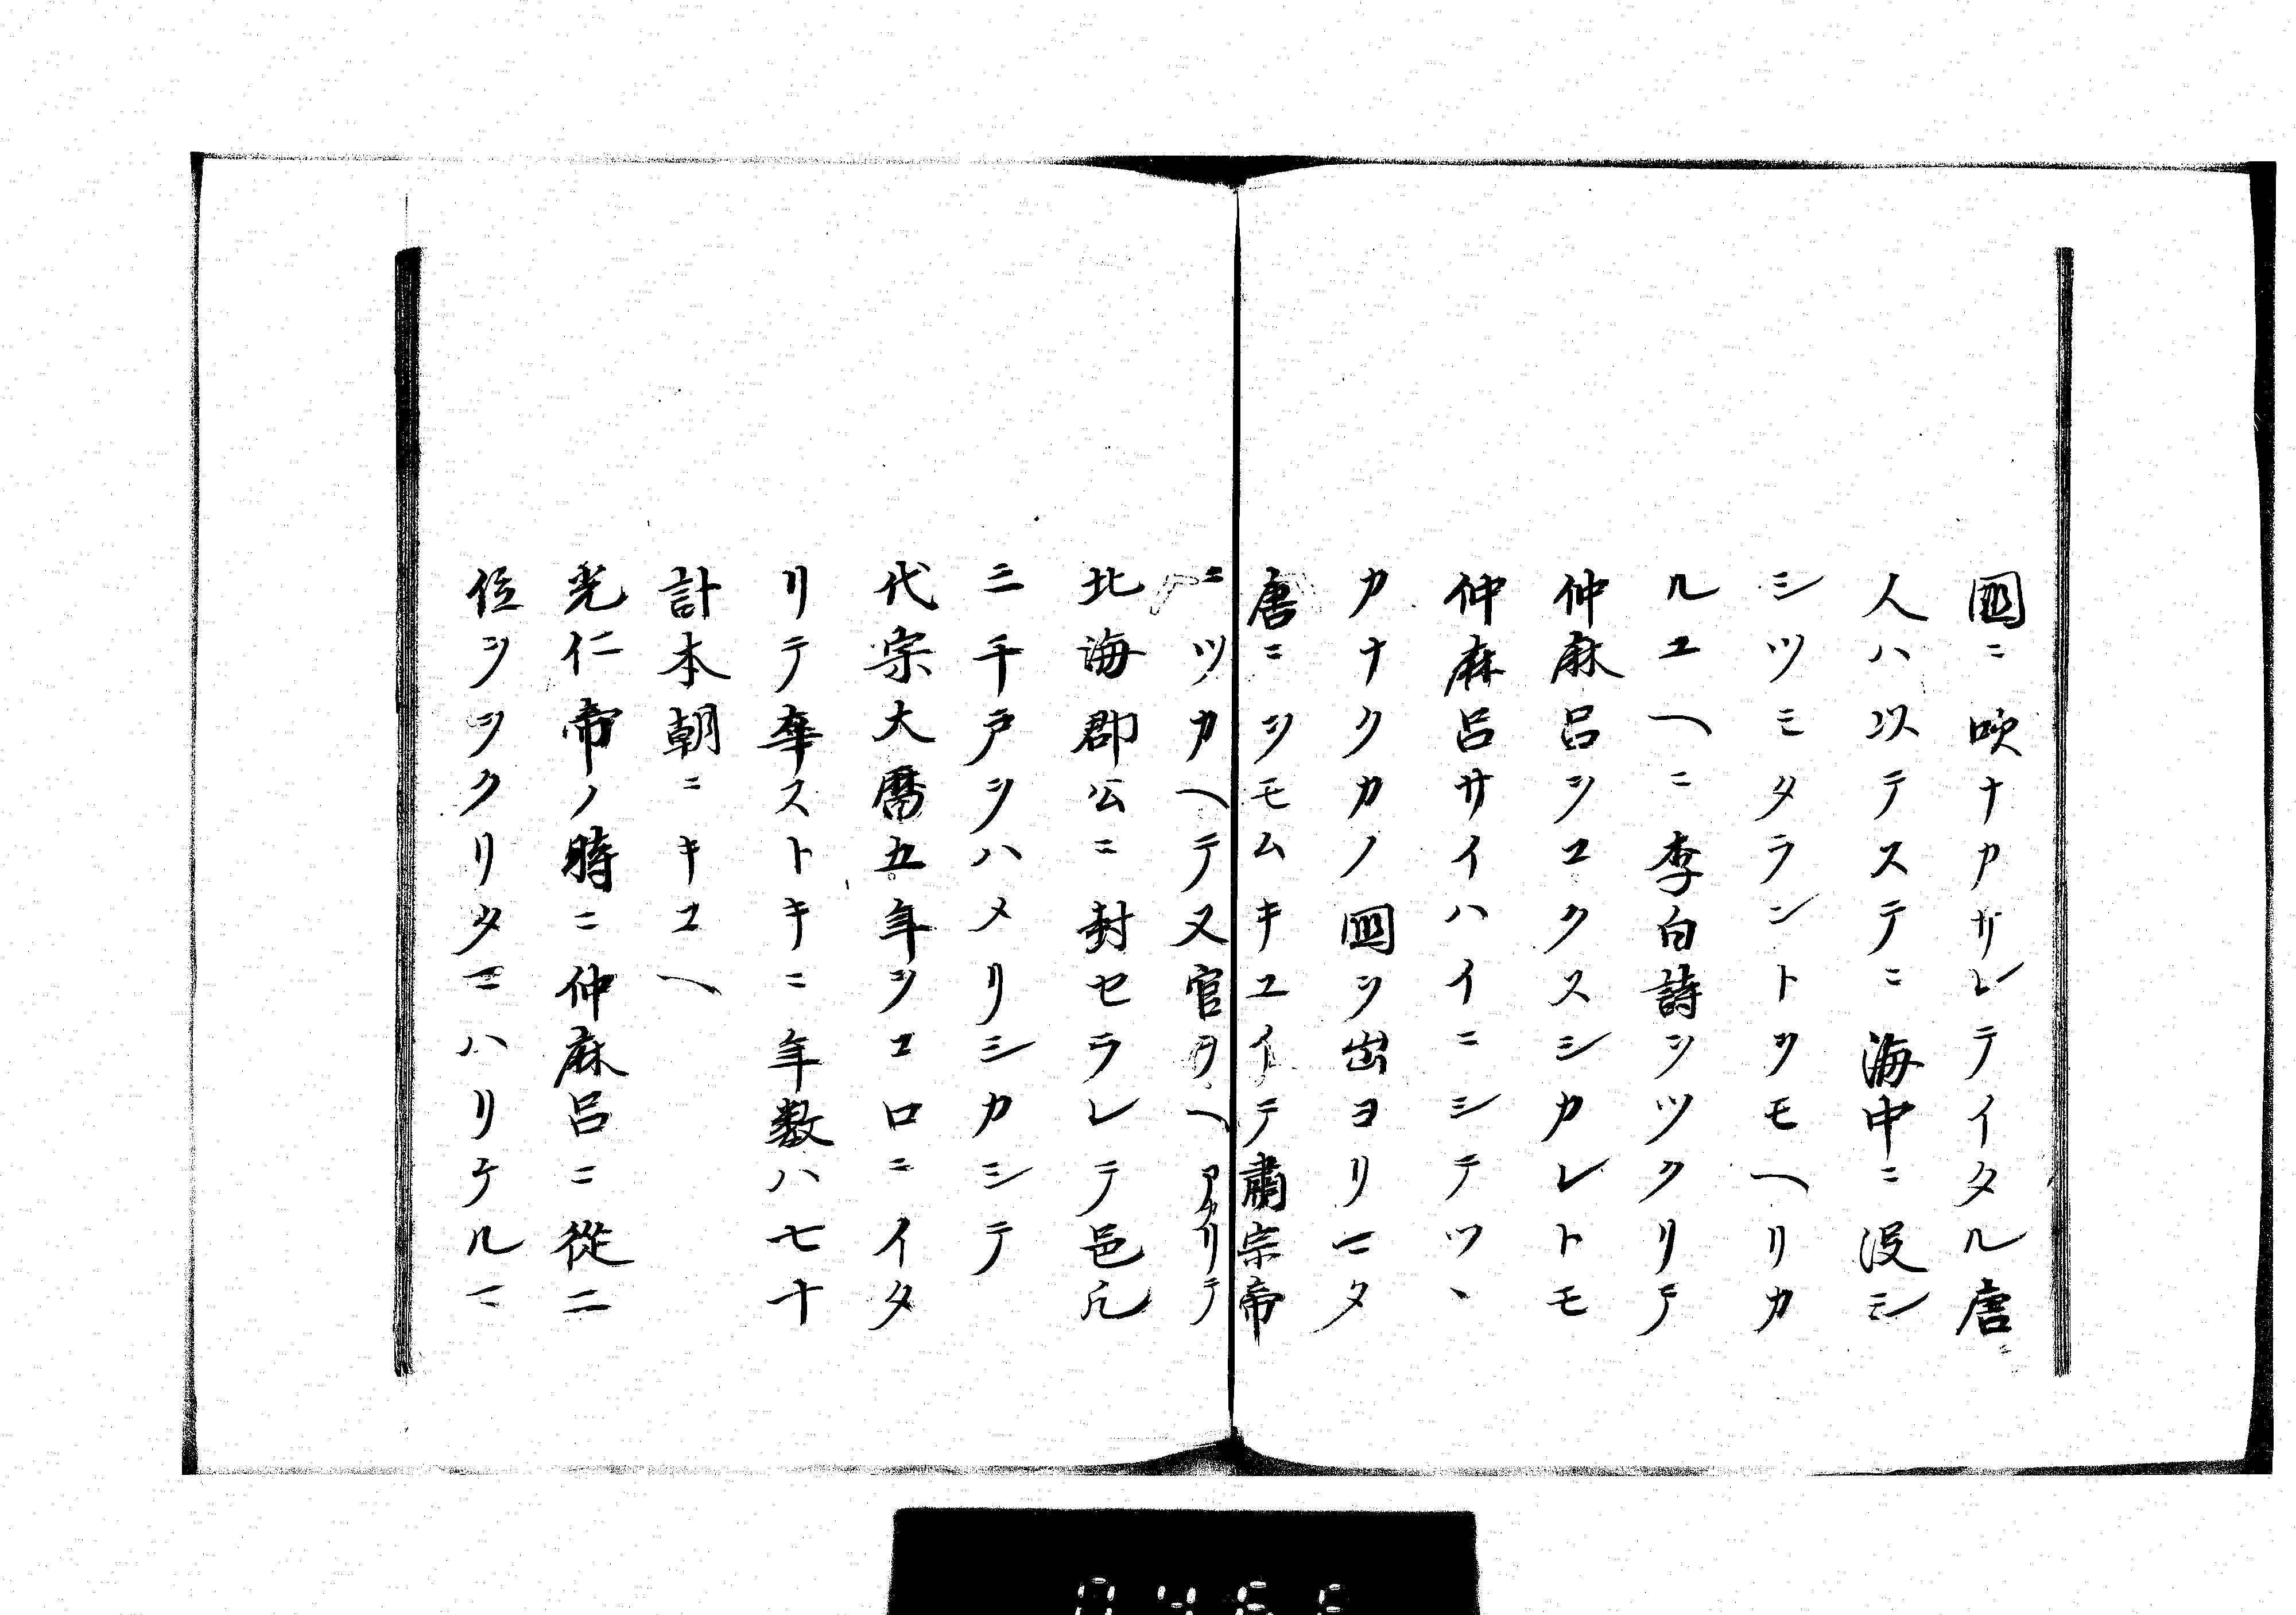 國ニ吹ナカサレテイタル唐ニ
人ハ以テステニ海中ニ没シ
シツミタラントヲモヘリカ
ルユヘニ李白詩ヲツクリテ
仲麻呂ヲコクスシカレトモ
仲麻呂サイハイニシテツヽ
カナクカノ國ヲ出ヨリマタ
唐ニヲモムキユイテ肅宗帝
ニツカヘテ又官ヲヘアカリテ
北海郡公ニ封セラレテ邑凡
三千戸ヲハメリシカシテ
代宗大曆五年ヲコロニイタ
リテ卒ストキニ年数ハ七十
計本朝ニキコヘ
光仁帝ノ時ニ仲麻呂ニ從二
位ヲヲクリタマハリケルマ